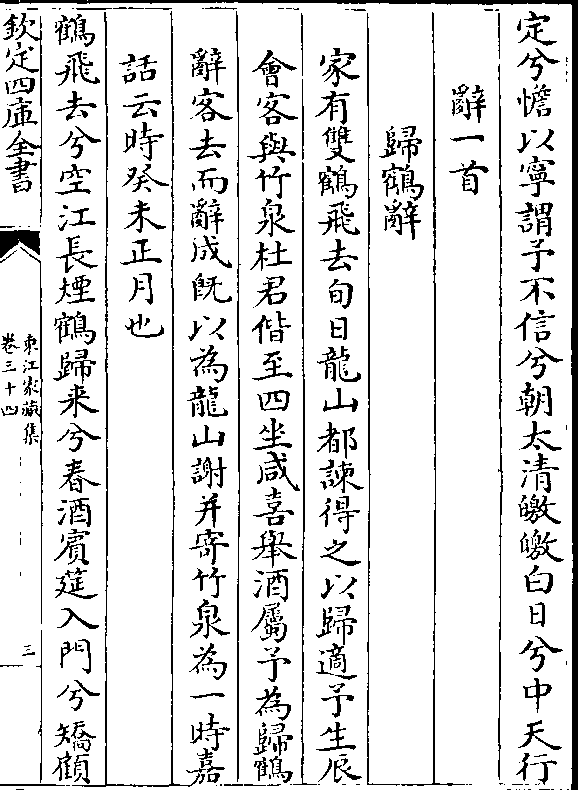 定兮憺以寧謂予不信兮朝太清皦皦白日兮中天行
辭一首
歸鶴辭
家有雙鶴飛去旬日龍山都諫得之以歸適予生辰
會客與竹泉杜君偕至四坐咸喜舉酒屬予為歸鶴
辭客去而辭成旣以為龍山謝并寄竹泉為一時嘉
話云時癸未正月也
鶴飛去兮空江長煙鶴歸来兮春酒賓筵入門兮矯顧
欽定四庫全書
東江家藏集
卷三十四
三